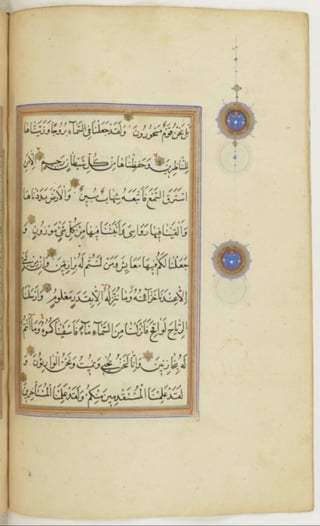 بل نحن قوم مسحورون ولقد جعلنا فی السماء بروجا وزیناها
للناظرین وحفظناها من کل شیطان رجیم الا من
استرق السمع فاتبعه شهاب مبین والارض مددناها
والقینا فیها رواسی وانبتنا فیها من کل شیء موزون و
جعلنا لکم فیها معایش ومن لستم له برازقین وان من شیء
الا عندنا خزائنه وما ننزله الا بقدر معلوم وارسلنا
الریاح لواقح فانزلنا من السماء ماء فاسقیناکموه وما انتم
له بخازنین وانا لنحن نحیی ونمیت ونحن الوارثون و
لقد علمنا المستقدمین منکم ولقد علمنا المستأخرین